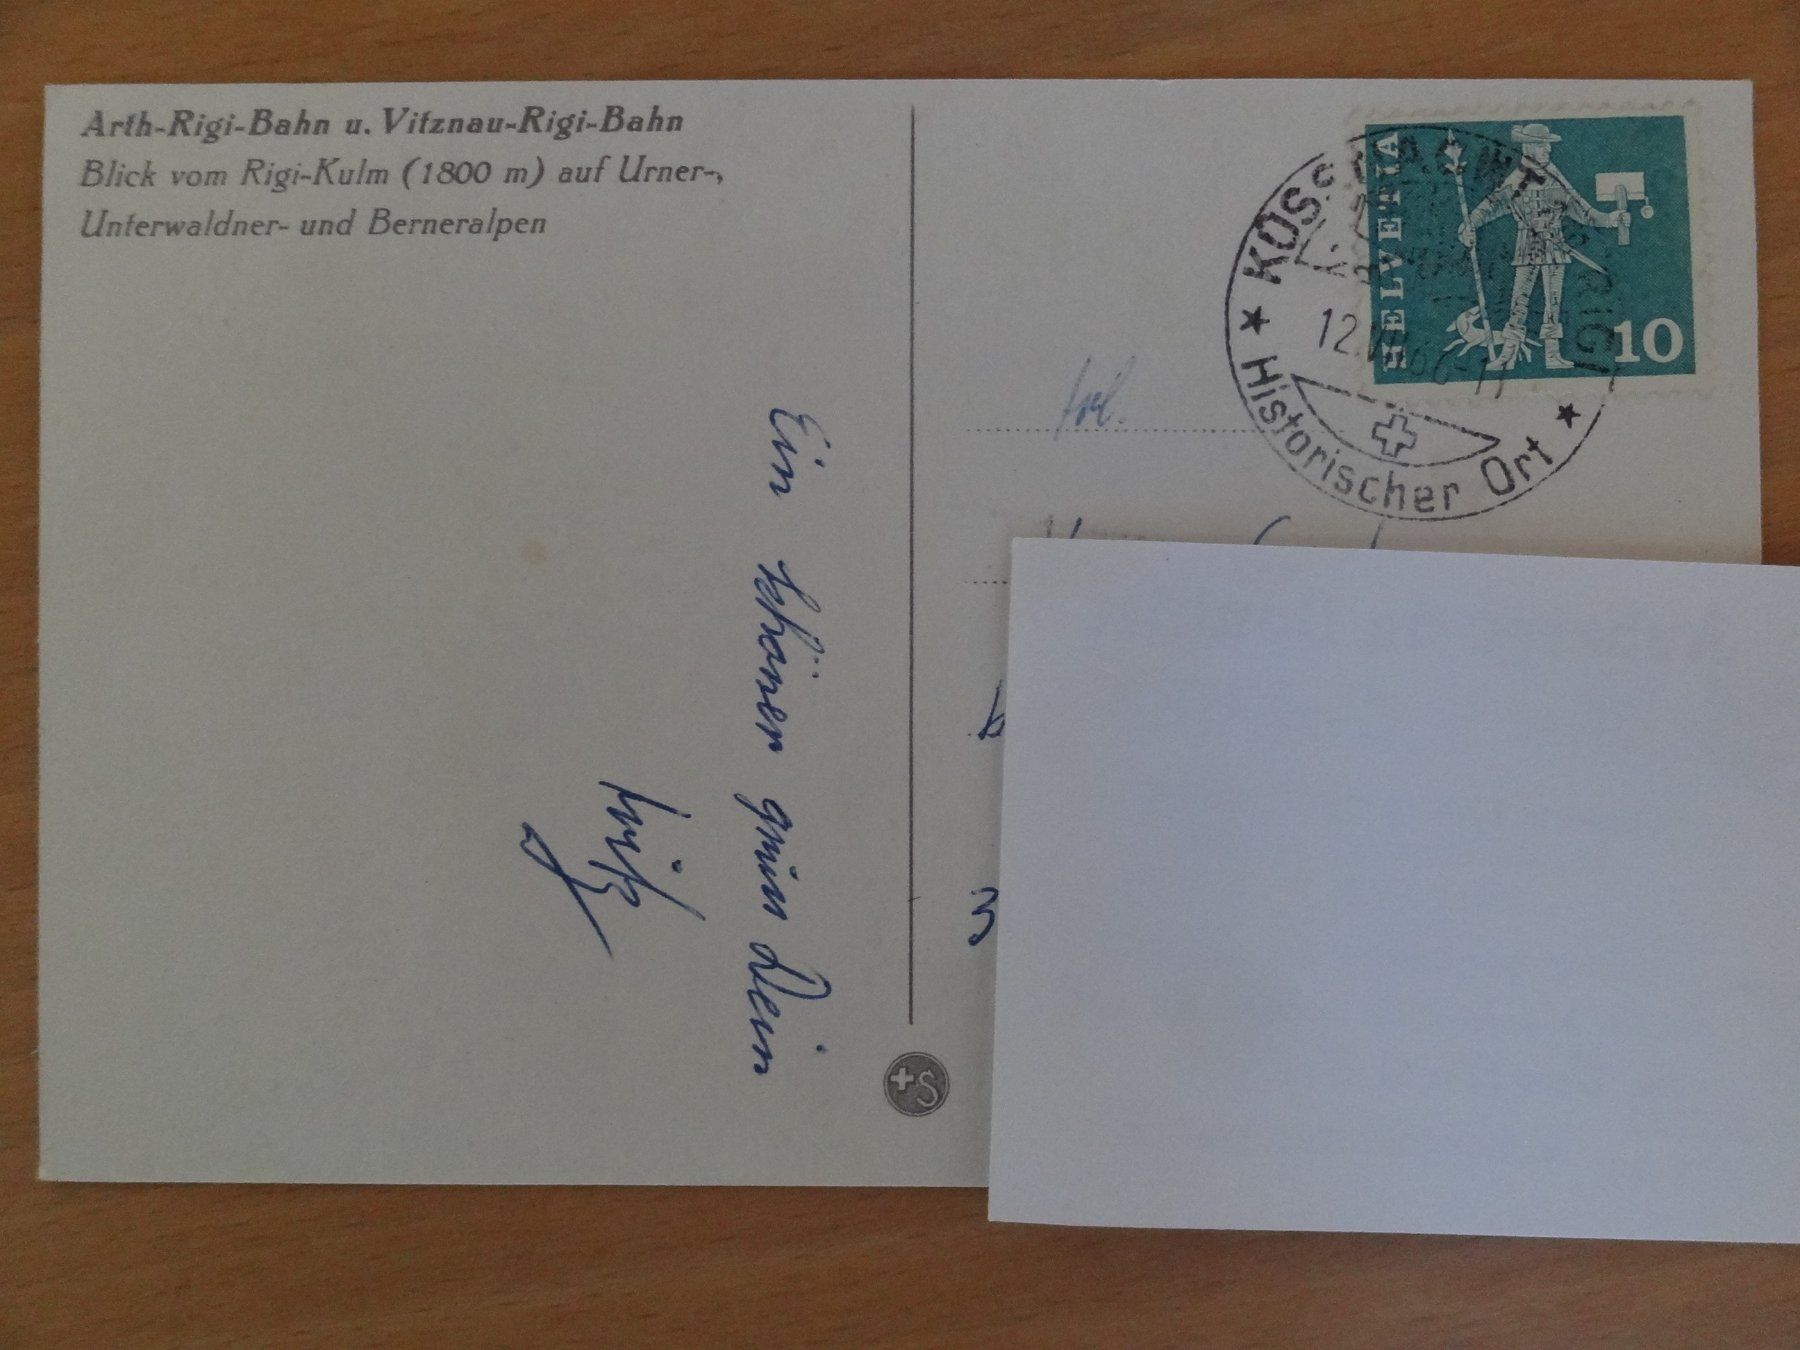 Arth-Rigi-Bahn u. Vitznau-Rigi-Bahn
Blick vom Rigi-Kulm (1800 m) auf Urner-,
Unterwaldner- und Berneralpen
Ein schöner gruss Dein
HELVETIA
10
KÜSSNACHT RIGI
12.VII.66-11
Historischer Ort
frl.
S